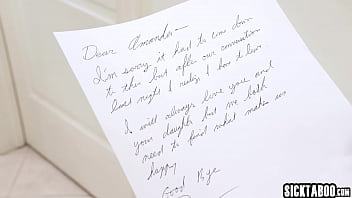 Dear Amanda
I'm sorry it has to come down
to this but after our conversation
last night I realize I have to leave.
I will always love you and
your daughter but we both
need to find what makes us
happy
Good Bye
SICKTABOO.COM